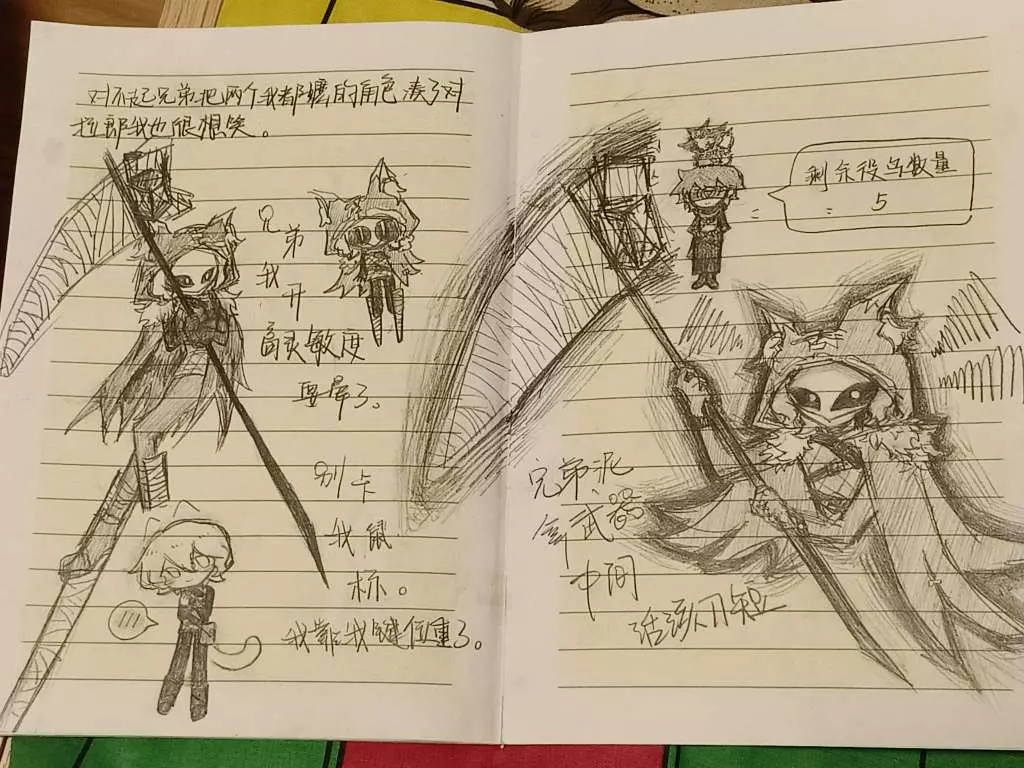 对不起兄弟把两个我都嬷的角色凑了对
拉郎我也很想笑。
兄弟
我
开
高灵敏度
要晕了。
别卡
我鼠
标。
我靠我键位重了。
剩余役鸟数量
5
兄弟泥
拿武器
中间
活该刀短